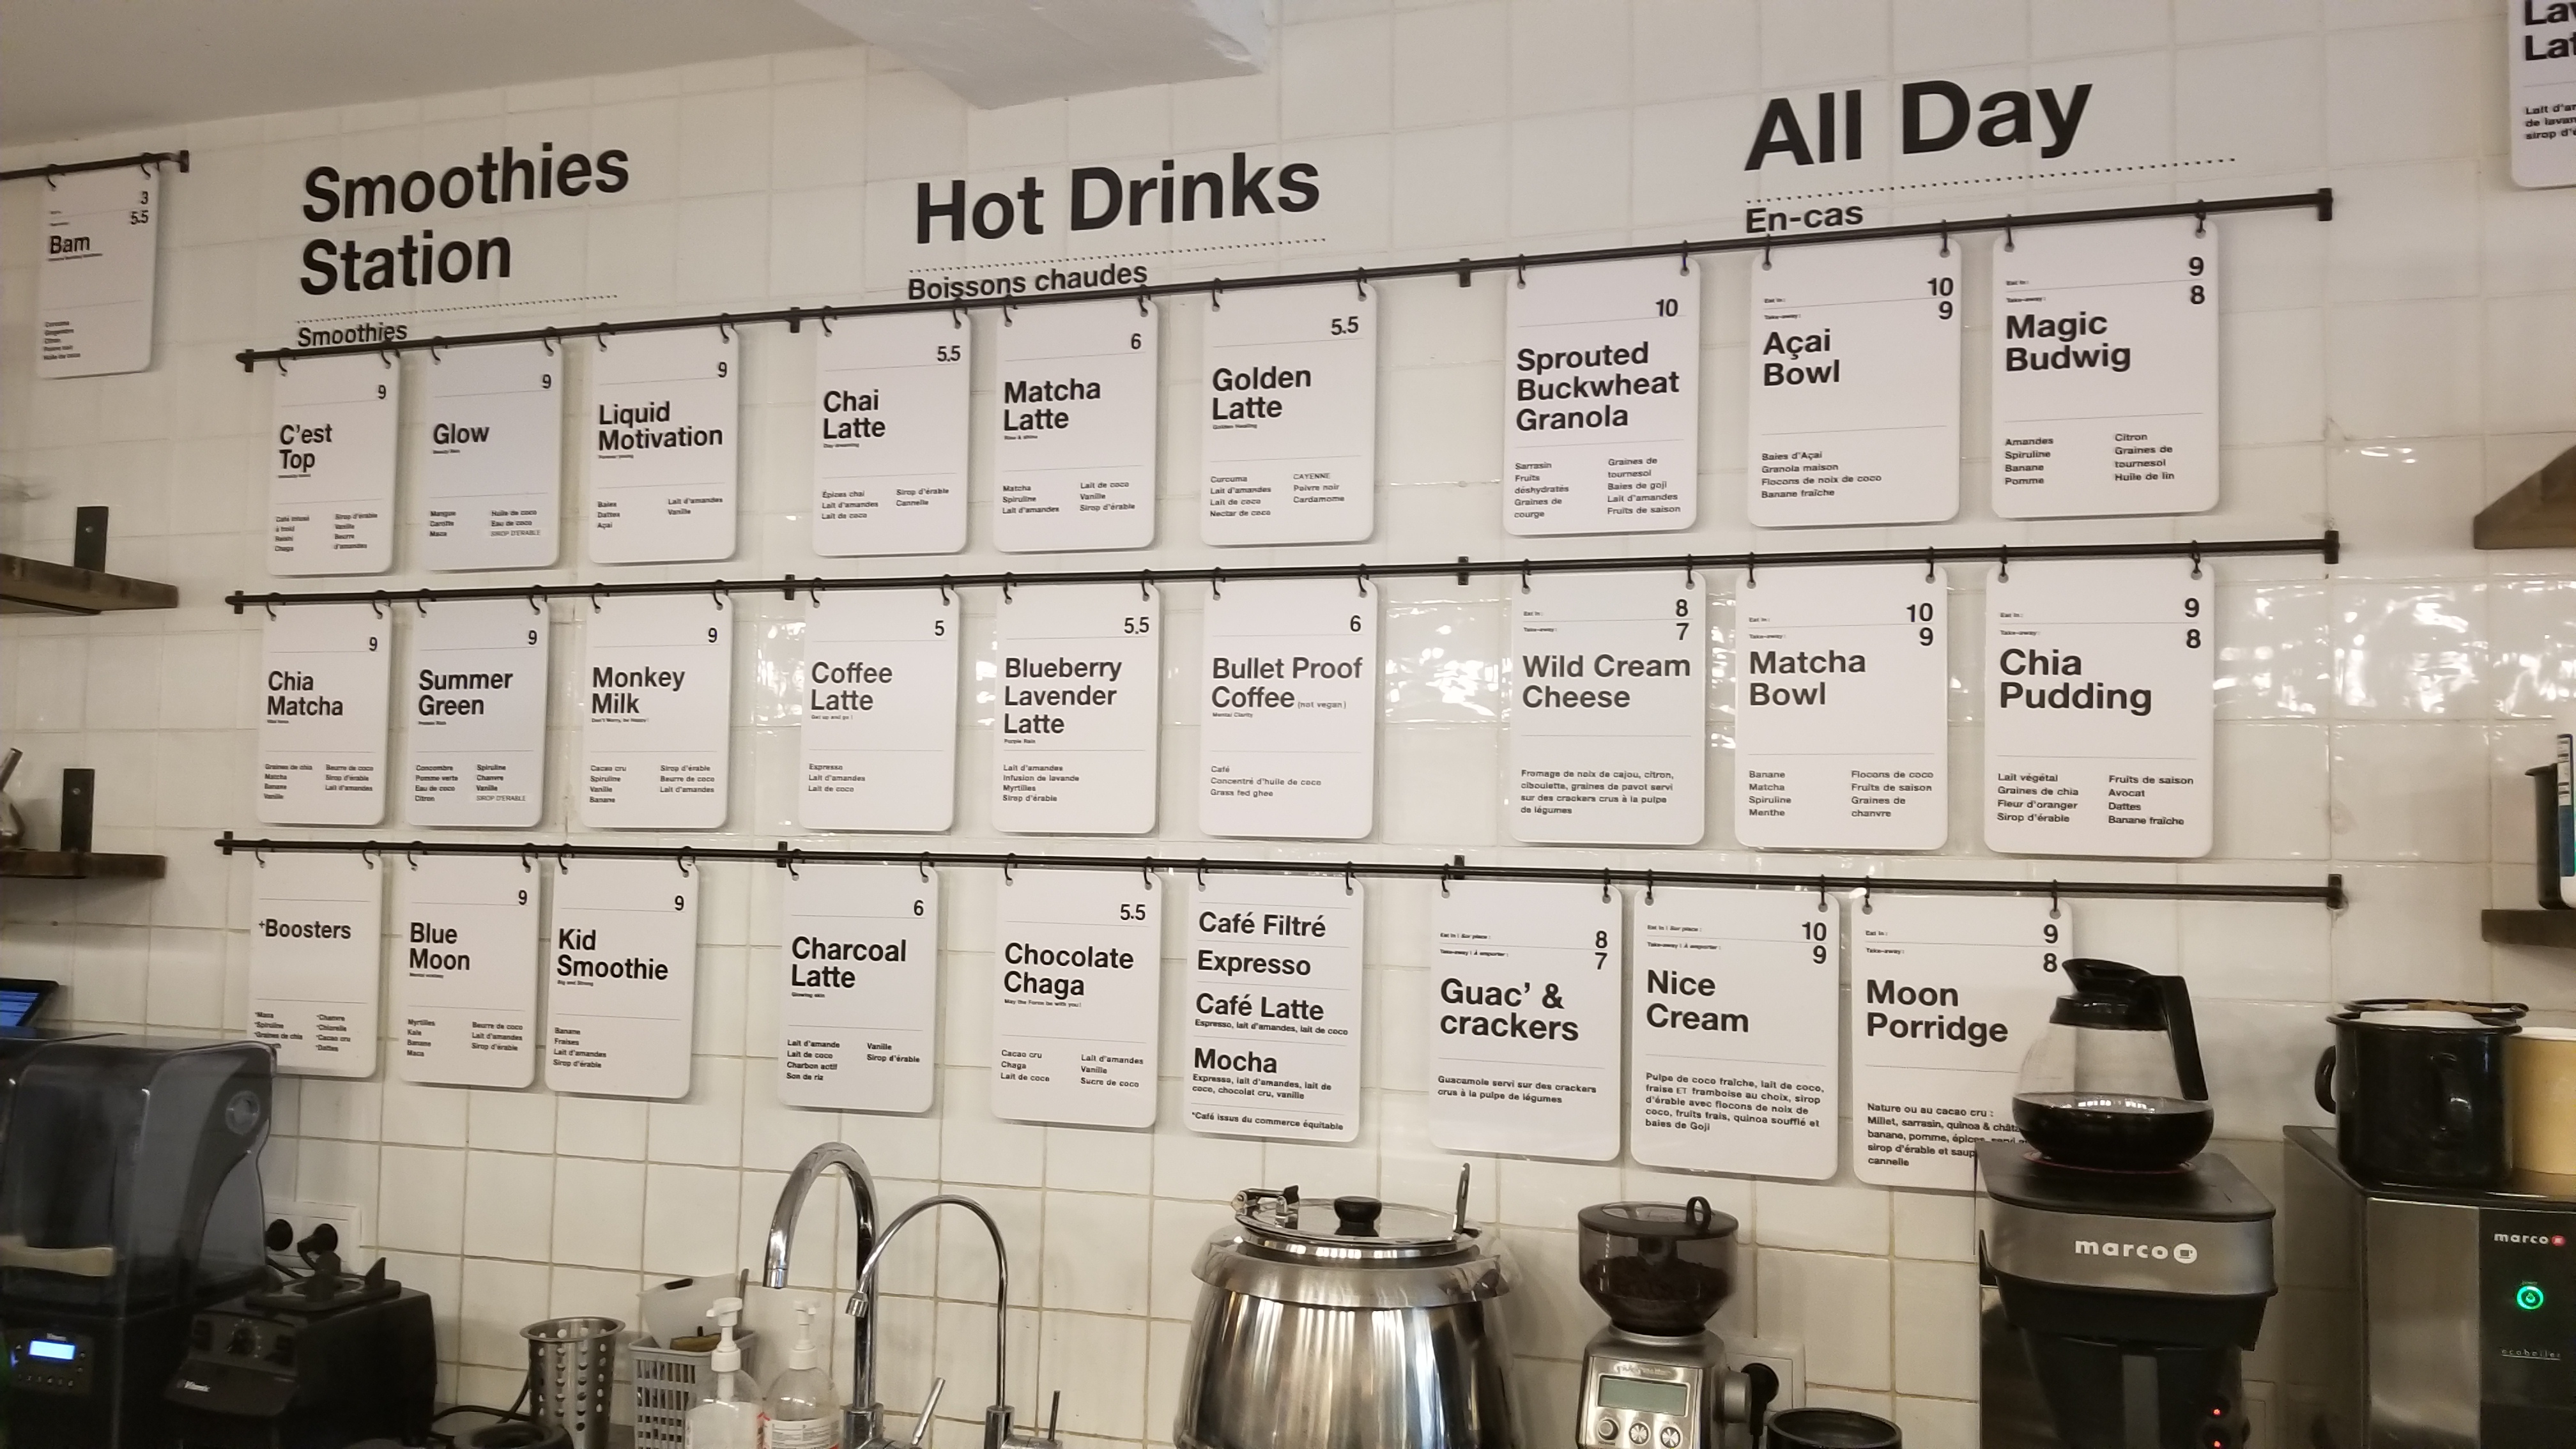 3
5.5
Bam
Curcuma
Gingembre
Citron
Poivre noir
Huile de coco
Smoothies
Station
Smoothies
9
C'est
Top
Café infusé
à froid
Reishi
Chaga
Sirop d'érable
Vanille
Beurre
d'amandes
9
Glow
Mangue
Carotte
Maca
Huile de coco
Eau de coco
SIROP D'ERABLE
9
Liquid
Motivation
Forever young
Baies
Dattes
Açai
Lait d'amandes
Vanille
9
Chia
Matcha
Graines de chia
Matcha
Banane
Vanille
Beurre de coco
Sirop d'érable
Lait d'amandes
9
Summer
Green
Concombre
Pomme verte
Eau de coco
Citron
Spiruline
Chanvre
Vanille
SIROP D'ERABLE
9
Monkey
Milk
Don't Worry, be Happy!
Cacao cru
Spiruline
Vanille
Banane
Sirop d'érable
Beurre de coco
Lait d'amandes
+Boosters
*Maca
*Spiruline
*Graines de chia
*Chanvre
*Chlorelle
*Cacao cru
*Dattes
9
Blue
Moon
Myrtilles
Kale
Banane
Maca
Beurre de coco
Lait d'amandes
Sirop d'érable
9
Kid
Smoothie
Big and Strong
Banane
Fraises
Lait d'amandes
Sirop d'érable
Hot Drinks
Boissons chaudes
5.5
Chai
Latte
Day dreaming
Épices chai
Lait d'amandes
Lait de coco
Sirop d'érable
Cannelle
6
Matcha
Latte
Rise & shine
Matcha
Spiruline
Lait d'amandes
Lait de coco
Vanille
Sirop d'érable
5.5
Golden
Latte
Golden Healing
Curcuma
Lait d'amandes
Lait de coco
Nectar de coco
CAYENNE
Poivre noir
Cardamome
5
Coffee
Latte
Get up and go!
Espresso
Lait d'amandes
Lait de coco
5.5
Blueberry
Lavender
Latte
Purple Rain
Lait d'amandes
Infusion de lavande
Myrtilles
Sirop d'érable
6
Bullet Proof
Coffee (not vegan)
Mental Clarity
Café
Concentré d'huile de coco
Grass fed ghee
6
Charcoal
Latte
Glowing skin
Lait d'amande
Lait de coco
Charbon actif
Son de riz
Vanille
Sirop d'érable
5.5
Chocolate
Chaga
May the Force be with you!
Cacao cru
Chaga
Lait de coco
Lait d'amandes
Vanille
Sucre de coco
Café Filtré
Expresso
Café Latte
Espresso, lait d'amandes, lait de coco
Mocha
Expresso, lait d'amandes, lait de
coco, chocolat cru, vanille
*Café issus du commerce équitable
All Day
En-cas
10
Sprouted
Buckwheat
Granola
Sarrasin
Fruits
déshydratés
Graines de
courge
Graines de
tournesol
Baies de goji
Lait d'amandes
Fruits de saison
Eat in: 10
Take-away: 9
Açai
Bowl
Baies d'Açai
Granola maison
Flocons de noix de coco
Banane fraîche
Eat in: 9
Take-away: 8
Magic
Budwig
Amandes
Spiruline
Banane
Pomme
Citron
Graines de
tournesol
Huile de lin
Eat in: 8
Take-away: 7
Wild Cream
Cheese
Fromage de noix de cajou, citron,
ciboulette, graines de pavot servi
sur des crackers crus à la pulpe
de légumes
Eat in: 10
Take-away: 9
Matcha
Bowl
Banane
Matcha
Spiruline
Menthe
Flocons de coco
Fruits de saison
Graines de
chanvre
Eat in: 9
Take-away: 8
Chia
Pudding
Lait végétal
Graines de chia
Fleur d'oranger
Sirop d'érable
Fruits de saison
Avocat
Dattes
Banane fraîche
Eat in | Sur place: 8
Take-away | À emporter: 7
Guac' &
crackers
Guacamole servi sur des crackers
crus à la pulpe de légumes
Eat in | Sur place: 10
Take-away | À emporter: 9
Nice
Cream
Pulpe de coco fraîche, lait de coco,
fraise ET framboise au choix, sirop
d'érable avec flocons de noix de
coco, fruits frais, quinoa soufflé et
baies de Goji
Eat in: 9
Take-away: 8
Moon
Porridge
Nature ou au cacao cru :
Millet, sarrasin, quinoa & chât
banane, pomme, épices, servi
sirop d'érable et saup
cannelle
Lav
Lat
Lait d'a
de lavan
sirop d'é
marco
marco
ecoboiler
Vitamix